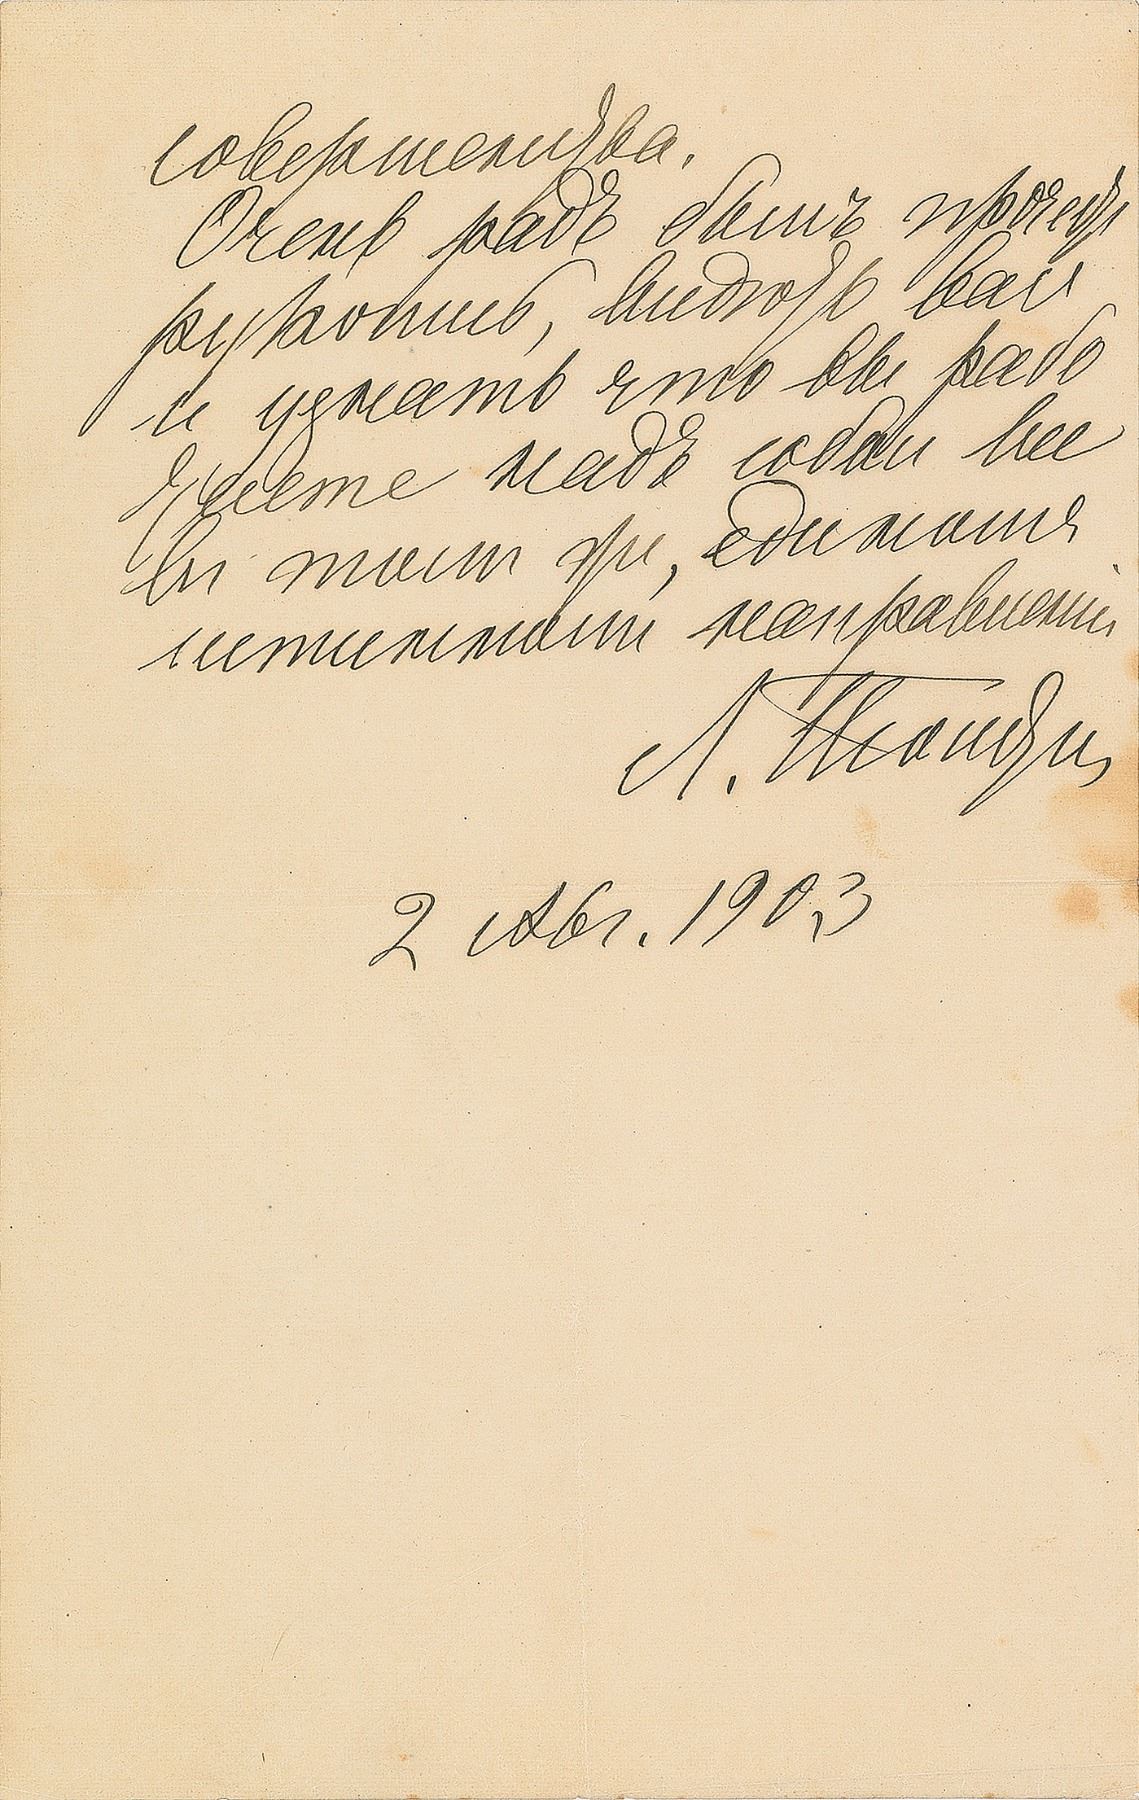 совершенства.
Очень радъ былъ прочесть
рукопись, видѣть вас
и узнать что вы рабо
таете надъ собой все
въ томъ же, единомъ
истинномъ направленіи
Л. Толстой
2 Авг. 1903